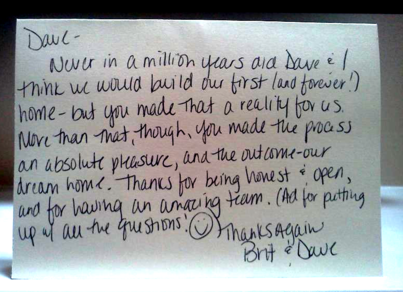 Dave-
Never in a million years did Dave & I
think we would build our first (and forever!)
home-but you made that a reality for us.
More than that, though, you made the process
an absolute pleasure, and the outcome-our
dream home. Thanks for being honest & open,
and for having an amazing team. (Ad for putting
up w/ all the questions! Thanks Again
Brit & Dave